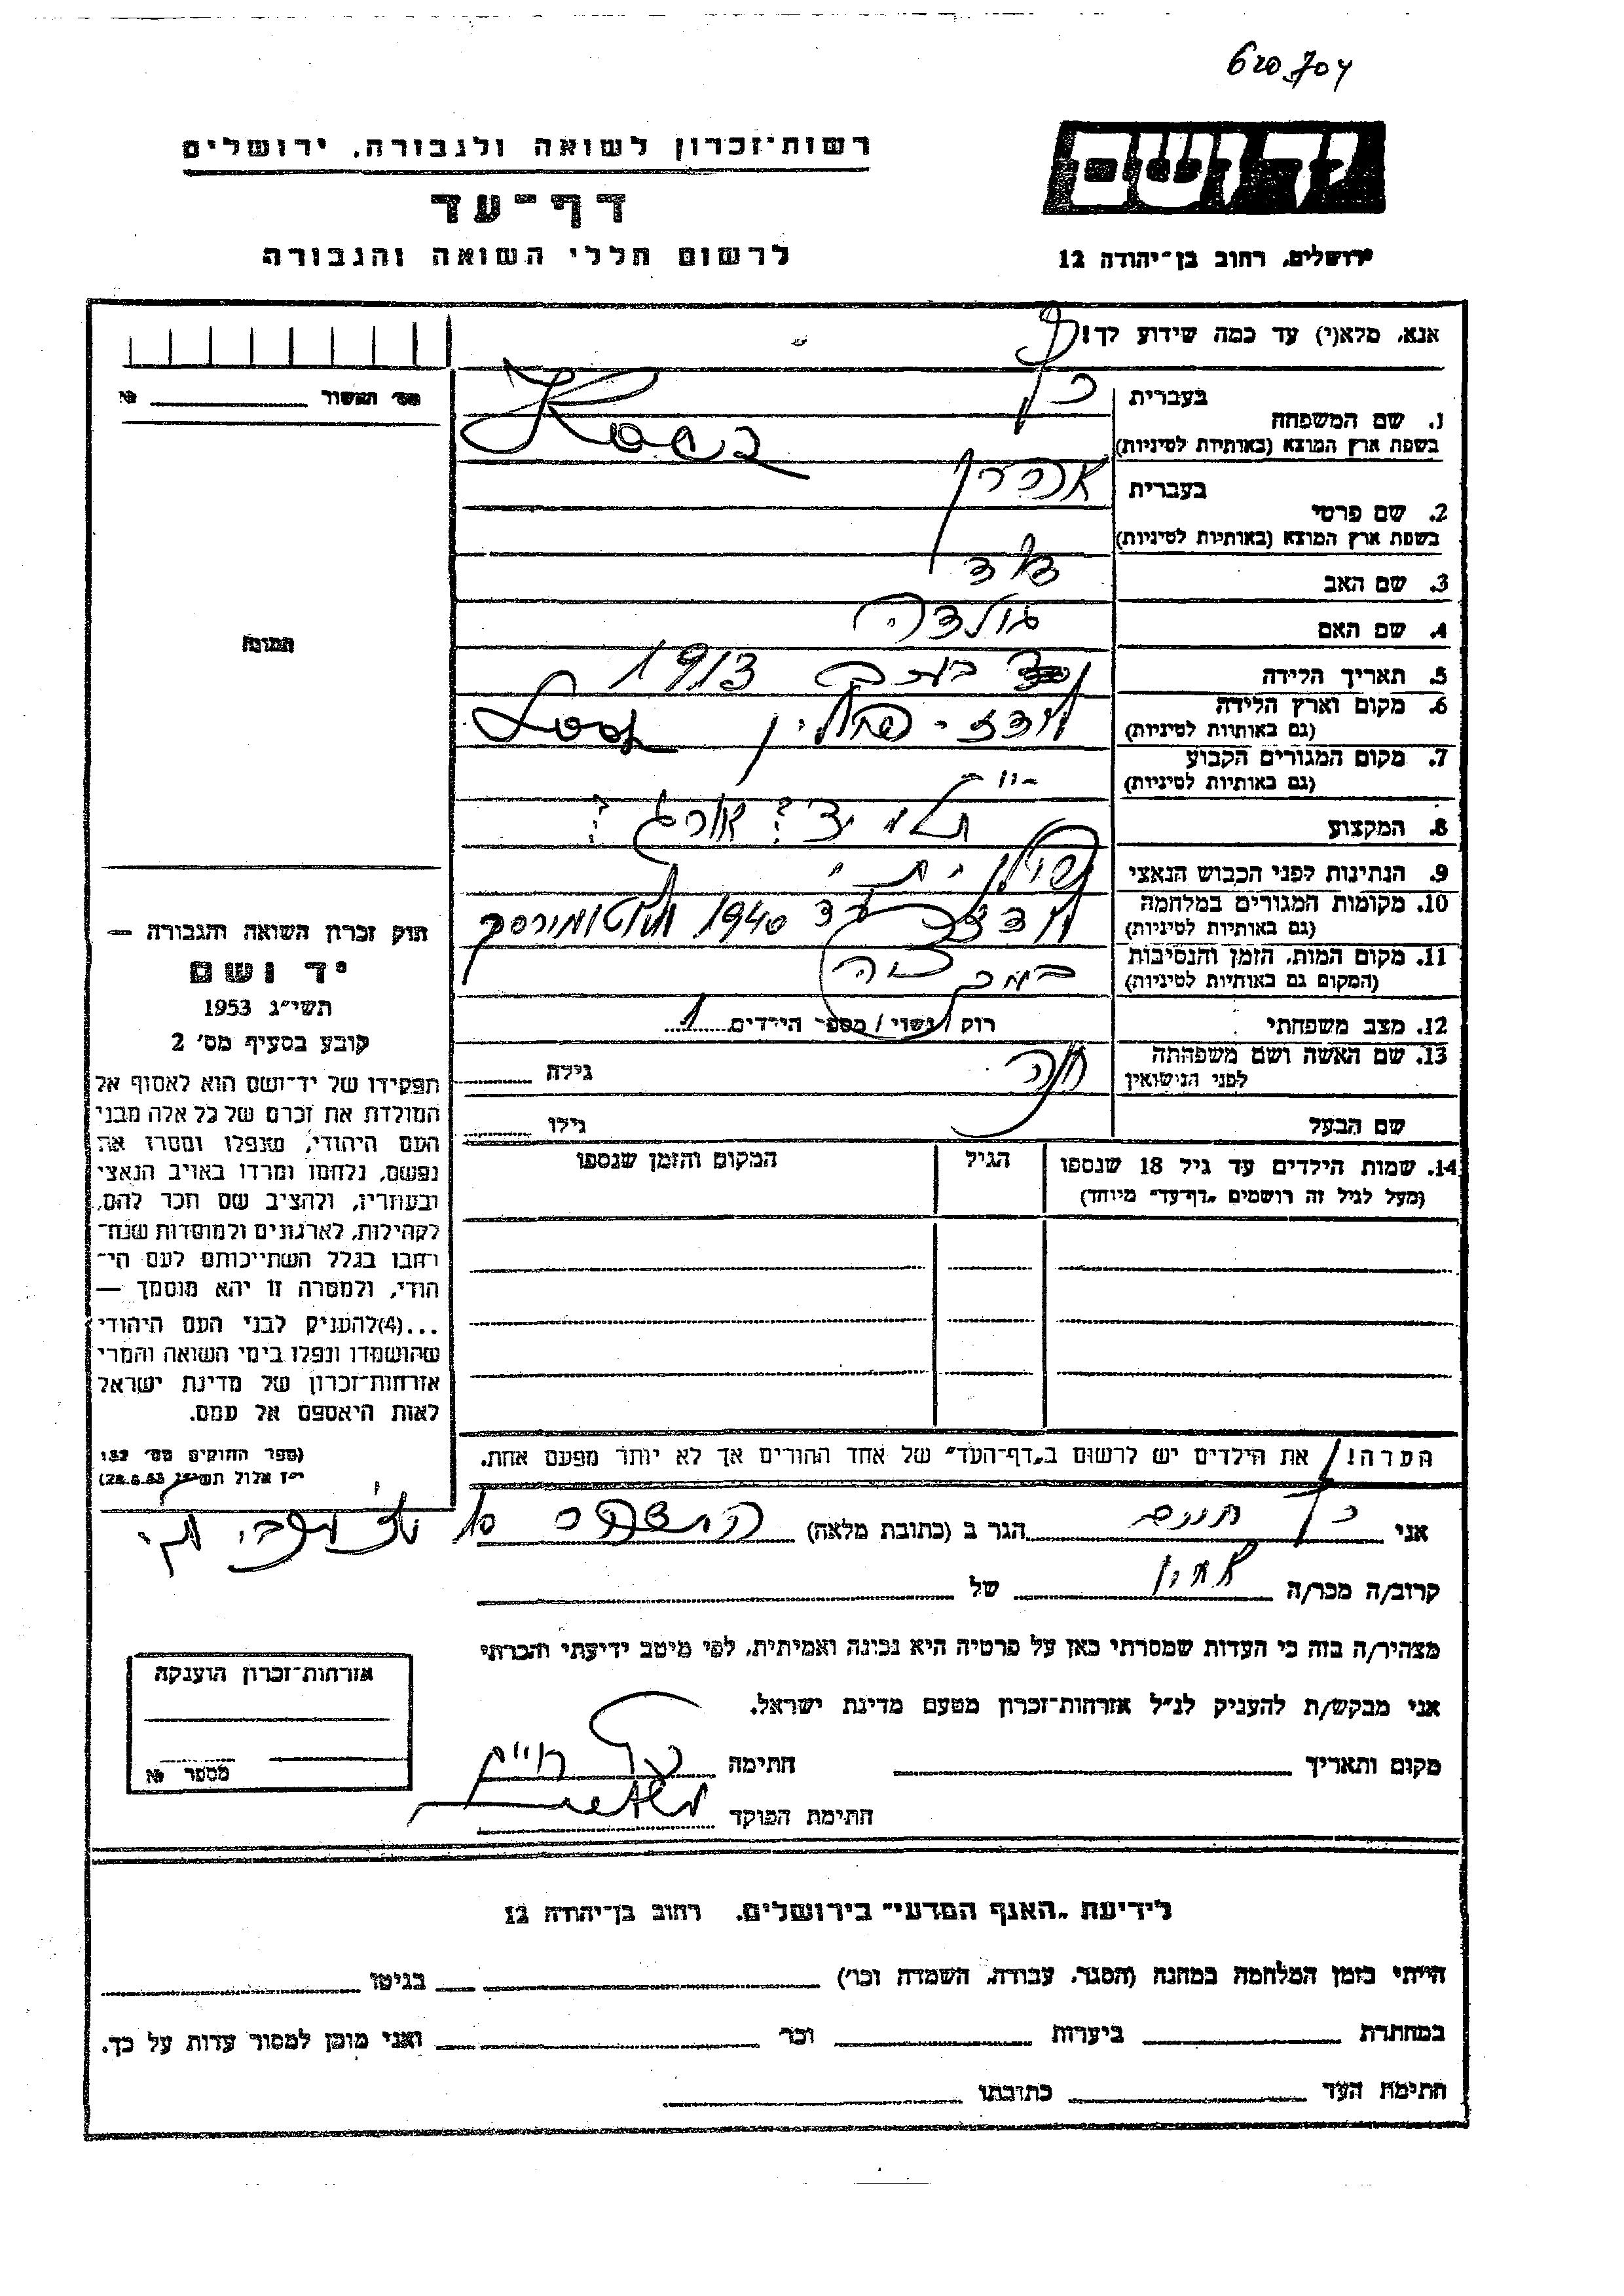 620704
רשות־זכרון לשואה ולגבורה, ירושלים
דף־עד
לרשום חללי השואה והגבורה
יד ושם
ירושלים, רחוב בן־יהודה 12
אנא, מלא(י) עד כמה שידוע לך!
מס' האשור №
1. שם המשפחה
בעברית כץ
בשפת ארץ המוצא (באותיות לטיניות)
2. שם פרטי
בעברית אהרן
בשפת ארץ המוצא (באותיות לטיניות)
3. שם האב דוד
4. שם האם גולדה
5. תאריך הלידה 1913
6. מקום וארץ הלידה
(גם באותיות לטיניות) לודז - פולין
7. מקום המגורים הקבוע
(גם באותיות לטיניות) - " -
8. המקצוע אורג ?
9. הנתינות לפני הכבוש הנאצי פולנית
10. מקומות המגורים במלחמה
(גם באותיות לטיניות) לודז עד 1940
11. מקום המות, הזמן והנסיבות
(המקום גם באותיות לטיניות)
12. מצב משפחתי רווק / נשוי / מספר הילדים 1
13. שם האשה ושם משפחתה
לפני הנישואין חוה גילה
שם הבעל גילו
14. שמות הילדים עד גיל 18 שנספו
(מעל לגיל זה רושמים „דף־עד" מיוחד)
הגיל
המקום והזמן שנספו
תמונה
חוק זכרון השואה והגבורה —
יד ושם
תשי"ג 1953
קובע בסעיף מס' 2
תפקידו של יד־ושם הוא לאסוף אל
המולדת את זכרם של כל אלה מבני
העם היהודי, שנפלו ומסרו את
נפשם, נלחמו ומרדו באויב הנאצי
ובעוזריו, ולהציב שם וזכר להם,
לקהילות, לארגונים ולמוסדות שנח־
רבו בגלל השתייכותם לעם הי־
הודי, ולמטרה זו יהא מוסמך —
...(4) להעניק לבני העם היהודי
שהושמדו ונפלו בימי השואה והמרי
אזרחות־זכרון של מדינת ישראל
לאות היאספם אל עמם.
(ספר החוקים מס' 132
י"ז אלול תשי"ג 28.8.53)
הערה! את הילדים יש לרשום ב„דף־העד" של אחד ההורים אך לא יותר מפעם אחת.
אני כץ חיים הגר ב (כתובת מלאה)
קרוב/ה מכר/ה אחיו של
מצהיר/ה בזה כי העדות שמסרתי כאן על פרטיה היא נכונה ואמיתית, לפי מיטב ידיעתי והכרתי
אני מבקש/ת להעניק לנ"ל אזרחות־זכרון מטעם מדינת ישראל.
מקום ותאריך חתימה כץ חיים
חתימת הפוקד
אזרחות־זכרון הוענקה
מספר №
לידיעת „האגף המדעי" בירושלים, רחוב בן־יהודה 12
הייתי בזמן המלחמה במחנה (הסגר, עבודה, השמדה וכו') בגיטו
במחתרת ביערות וכו' ואני מוכן למסור עדות על כך.
חתימת העד כתובתו